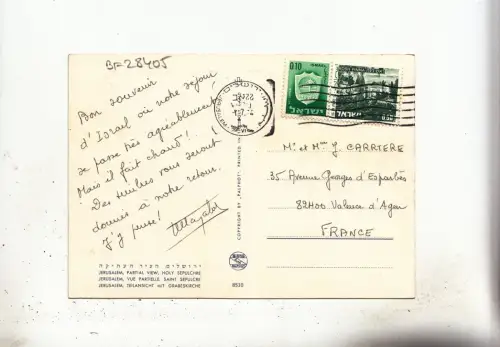 BF 28405
Bon souvenir
d'Israel où notre séjour
se passe très agréablement
Mais il fait chaud!..
Des timbres vous seront
donnés à notre retour.
J'y pense!
0.10
ISRAEL
ישראל
ISRAEL
ישראל
Mr et Mme J. CARRIERE
35 Avenue Georges d'Esparbès
82400 Valence d'Agen
FRANCE
COPYRIGHT BY "PALPHOT" PRINTED IN
ירושלים, העיר העתיקה
JERUSALEM, PARTIAL VIEW, HOLY SEPULCHRE
JERUSALEM, VUE PARTIELLE, SAINT SEPULCRE
JERUSALEM, TEILANSICHT MIT GRABESKIRCHE
8535